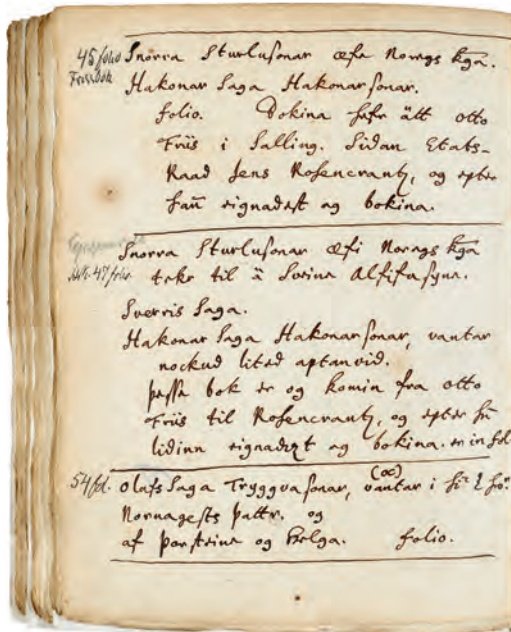 45 folio Snorra Sturlusonar æfe Noregs kga.
Frissbok Hakonar Saga Hakonarsonar.
folio. Bokina hefr átt otto
Friis i Salling. Sidan Etats-
Raad Jens Rosencrantz, og epter
hañ eignadest eg bokina.
Snorra Sturlusonar æfi Noregs kga
47 folio tekr til â Sveine Alfifusyne.
Sverris Saga.
Hakonar Saga Hakonarsonar, vantar
nockud lited aptanvid.
þesse bok er og komin fra otto
Friis til Rosencrantz, og epter
lidinn eignadezt eg bokina. er in fol
54 fol. Olafs Saga Tryggvasonar, (oc) vantar i
Nornagests þattr. og
af þorsteine og Helga. folio.